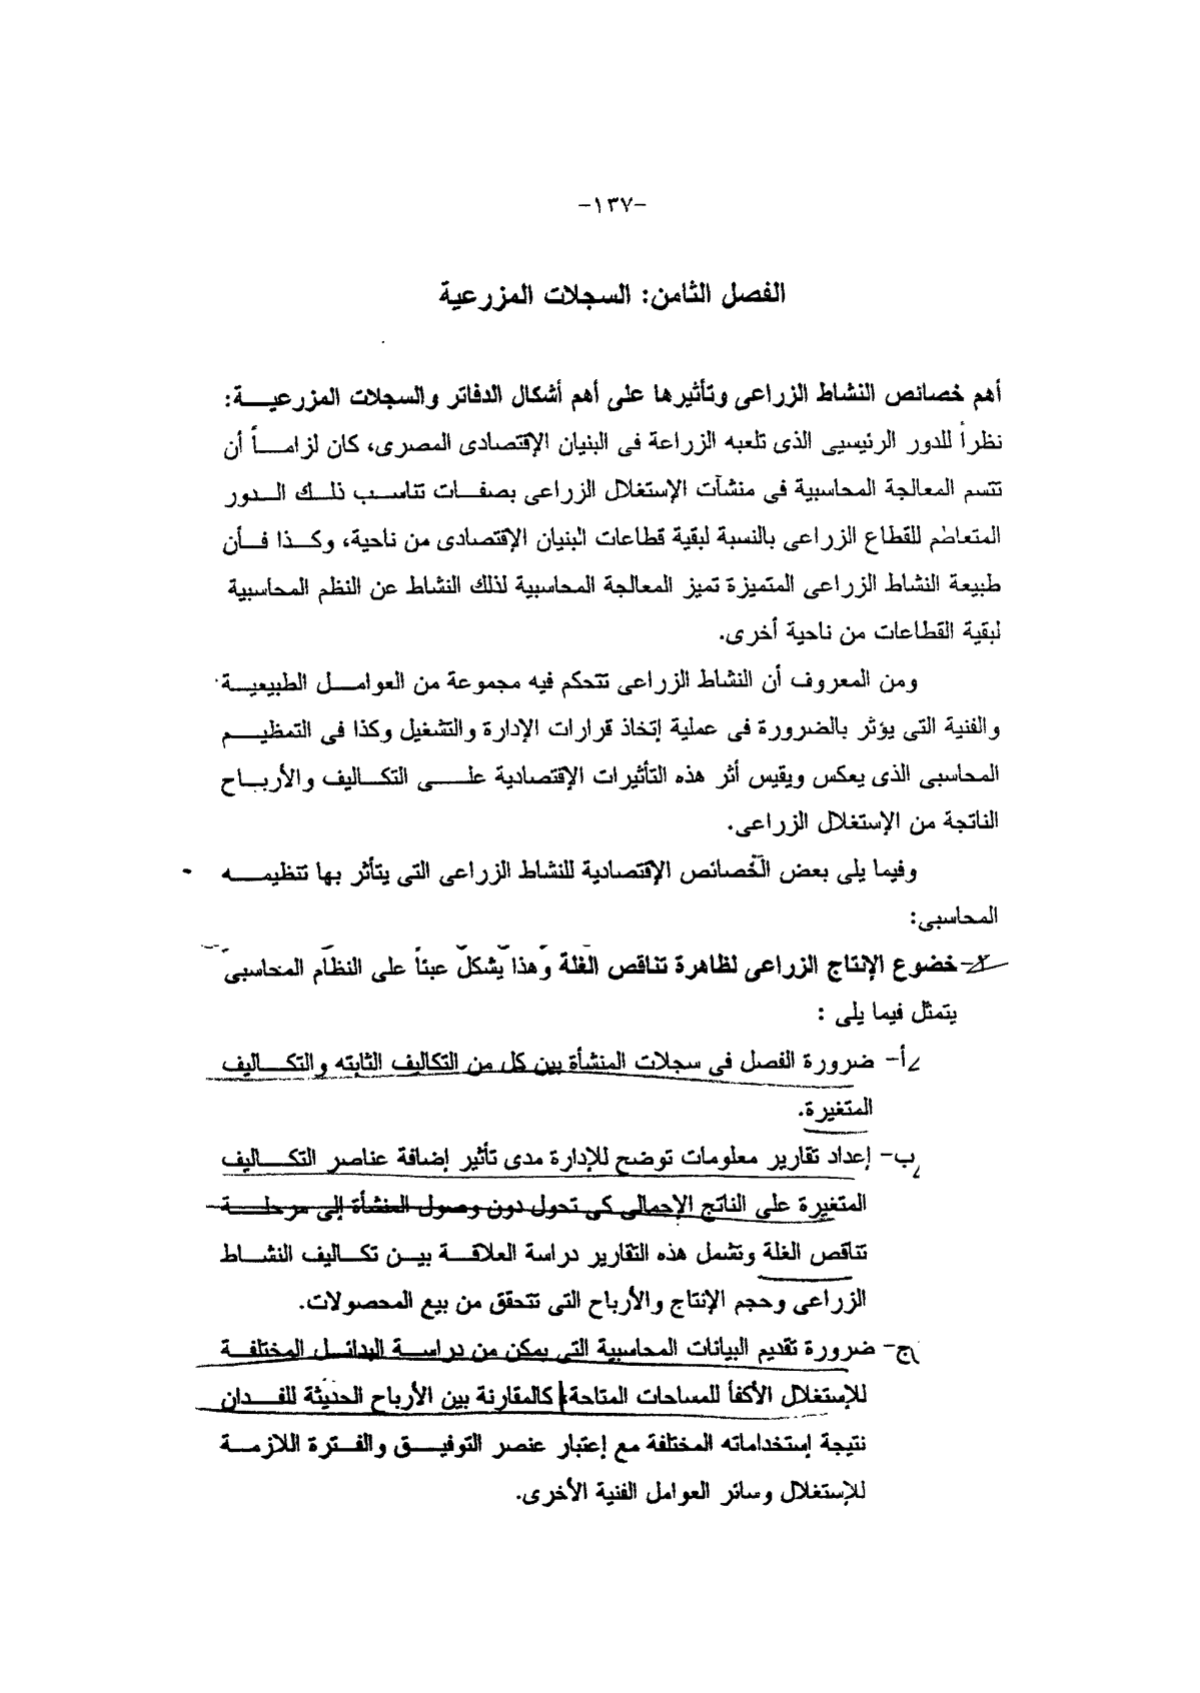 -١٣٧-
الفصل الثامن: السجلات المزرعية
أهم خصائص النشاط الزراعى وتأثيرها على أهم أشكال الدفاتر والسجلات المزرعيـــة:
نظراً للدور الرئيسيى الذى تلعبه الزراعة فى البنيان الإقتصادى المصرى، كان لزامـــاً أن
تتسم المعالجة المحاسبية فى منشآت الإستغلال الزراعى بصفـات تناسـب ذلـك الـدور
المتعاظم للقطاع الزراعى بالنسبة لبقية قطاعات البنيان الإقتصادى من ناحية، وكـذا فـأن
طبيعة النشاط الزراعى المتميزة تميز المعالجة المحاسبية لذلك النشاط عن النظم المحاسبية
لبقية القطاعات من ناحية أخرى.
ومن المعروف أن النشاط الزراعى تتحكم فيه مجموعة من العوامـل الطبيعيـة
والفنية التى يؤثر بالضرورة فى عملية إتخاذ قرارات الإدارة والتشغيل وكذا فى التمظيـم
المحاسبى الذى يعكس ويقيس أثر هذه التأثيرات الإقتصادية علـى التكـاليف والأربـاح
الناتجة من الإستغلال الزراعى.
وفيما يلى بعض الخصائص الإقتصادية للنشاط الزراعى التى يتأثر بها تنظيمـه
المحاسبى:
خضوع الإنتاج الزراعى لظاهرة تناقص الغلة وهذا يشكل عبئاً على النظام المحاسبى
يتمثل فيما يلى :
أ- ضرورة الفصل فى سجلات المنشأة بين كل من التكاليف الثابته والتكـاليف
المتغيرة.
ب- إعداد تقارير معلومات توضح للإدارة مدى تأثير إضافة عناصر التكـاليف
المتغيرة على الناتج الإجمالى كى تحول دون وصول المنشأة إلى مرحلـة
تناقص الغلة وتشمل هذه التقارير دراسة العلاقـة بيـن تكـاليف النشـاط
الزراعى وحجم الإنتاج والأرباح التى تتحقق من بيع المحصولات.
ج- ضرورة تقديم البيانات المحاسبية التى يمكن من دراسـة البدائـل المختلفـة
للإستغلال الأكفأ للمساحات المتاحة، كالمقارنة بين الأرباح الحديثة للفـدان
نتيجة إستخداماته المختلفة مع إعتبار عنصر التوفيـق والفـترة اللازمـة
للإستغلال وسائر العوامل الفنية الأخرى.